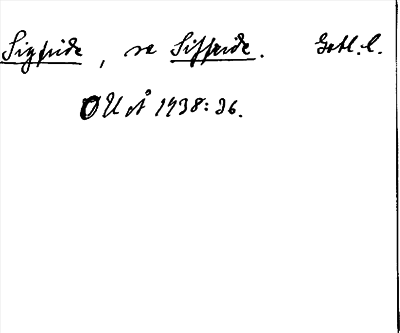 Sigfride, se Siffride. Gotl. l.
OUÅ 1938:36.